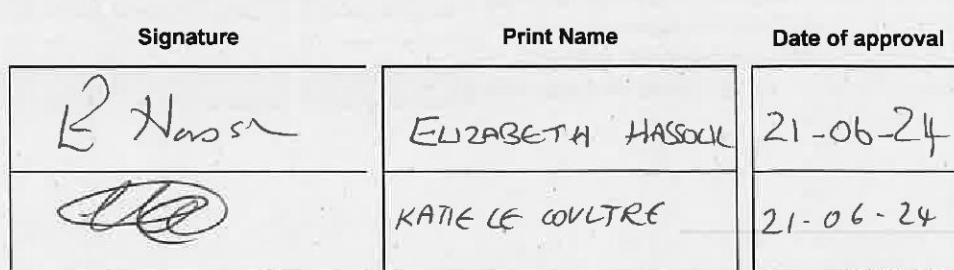 Signature Print Name Date of approval
E Hasso ELIZABETH HASSOCK 21-06-24
KATIE LE COULTRE 21-06-24